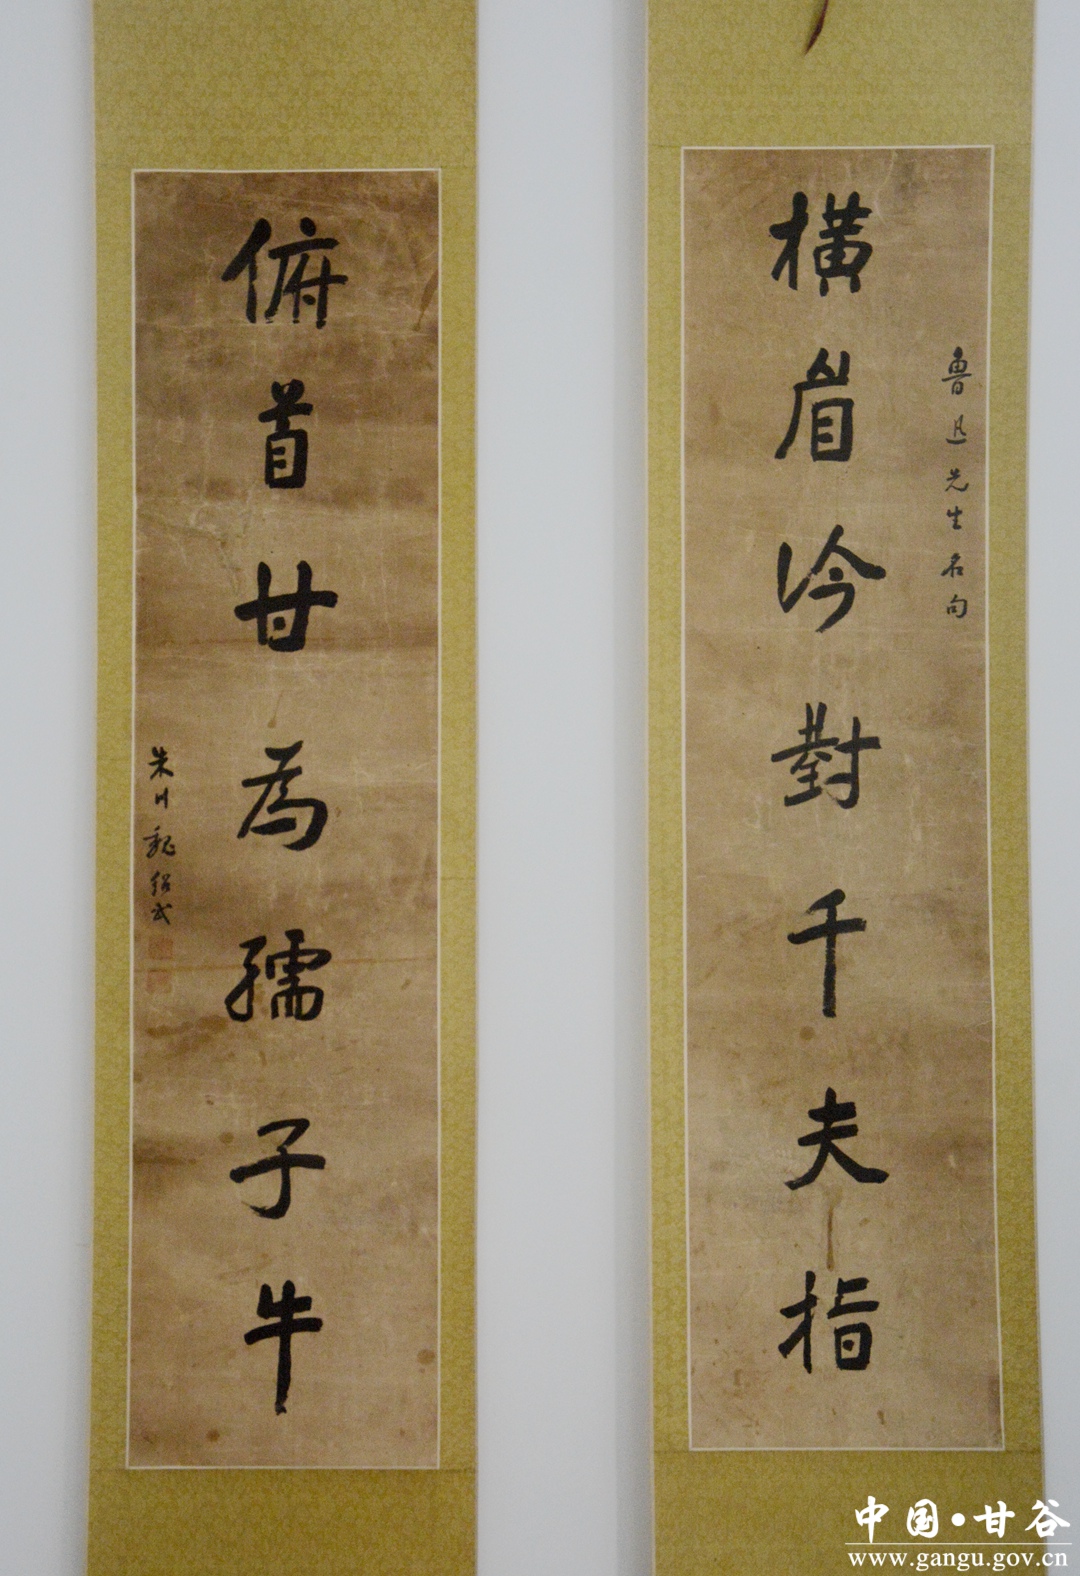 横眉冷對千夫指
鲁迅先生名句
俯首甘為孺子牛
朱川魏紹武
中国·甘谷
www.gangu.gov.cn